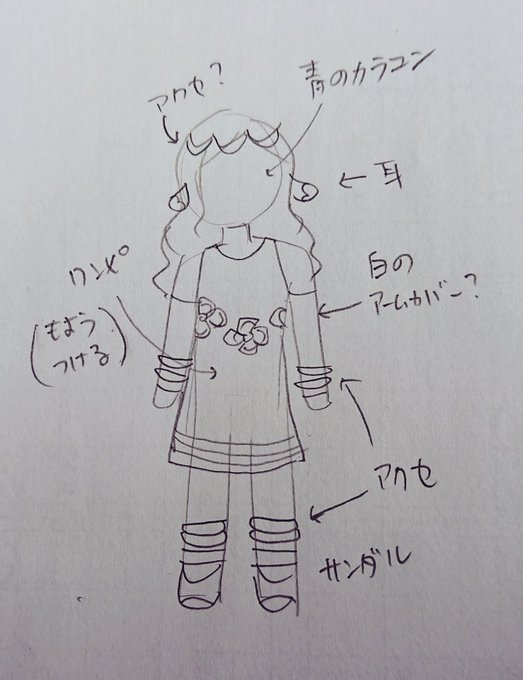 アクセ?
青のカラコン
耳
ワンピ
(もよう
つける)
白の
アームカバー?
アクセ
サンダル